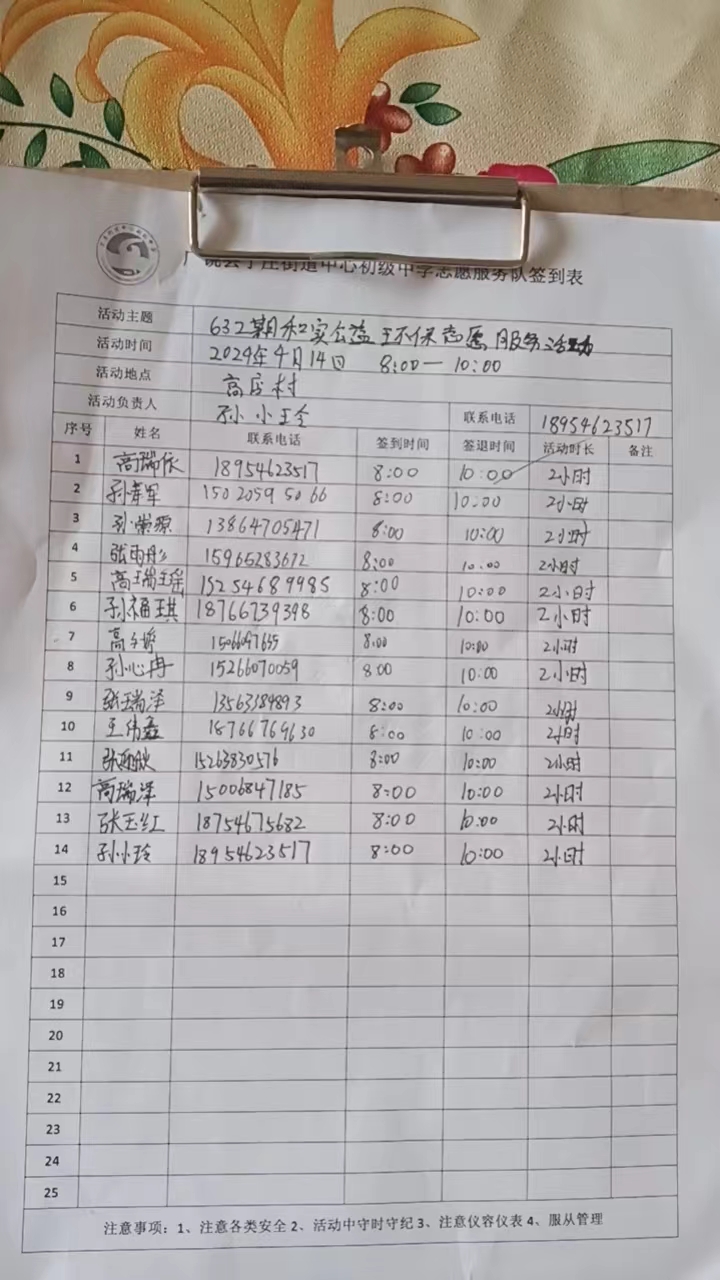 街道中心初级中学志愿服务队签到表
活动主题 632期和实公益 环保志愿服务活动
活动时间 2024年4月14日 8:00—10:00
活动地点 高店村
活动负责人 孙小玲 联系电话 18954623517
序号 姓名 联系电话 签到时间 签退时间 活动时长 备注
1 高瑞依 18954623517 8:00 10:00 2小时
2 孙军 150 2059 5066 8:00 10:00 2小时
3 孙崇源 13864705471 8:00 10:00 2小时
4 张雨彤 15965283672 8:00 10:00 2小时
5 高瑞瑶 15254689985 8:00 10:00 2小时
6 孙福琪 18766739398 8:00 10:00 2小时
7 高 8:00 10:00 2小时
8 孙心冉 15266070059 8:00 10:00 2小时
9 张瑞泽 13563384893 8:00 10:00 2小时
10 王伟 18766769630 8:00 10:00 2小时
11 张 15263830576 8:00 10:00 2小时
12 高瑞泽 15006847185 8:00 10:00 2小时
13 张玉红 18754675682 8:00 10:00 2小时
14 孙小玲 18954623517 8:00 10:00 2小时
15
16
17
18
19
20
21
22
23
24
25
注意事项：1、注意各类安全 2、活动中守时守纪 3、注意仪容仪表 4、服从管理